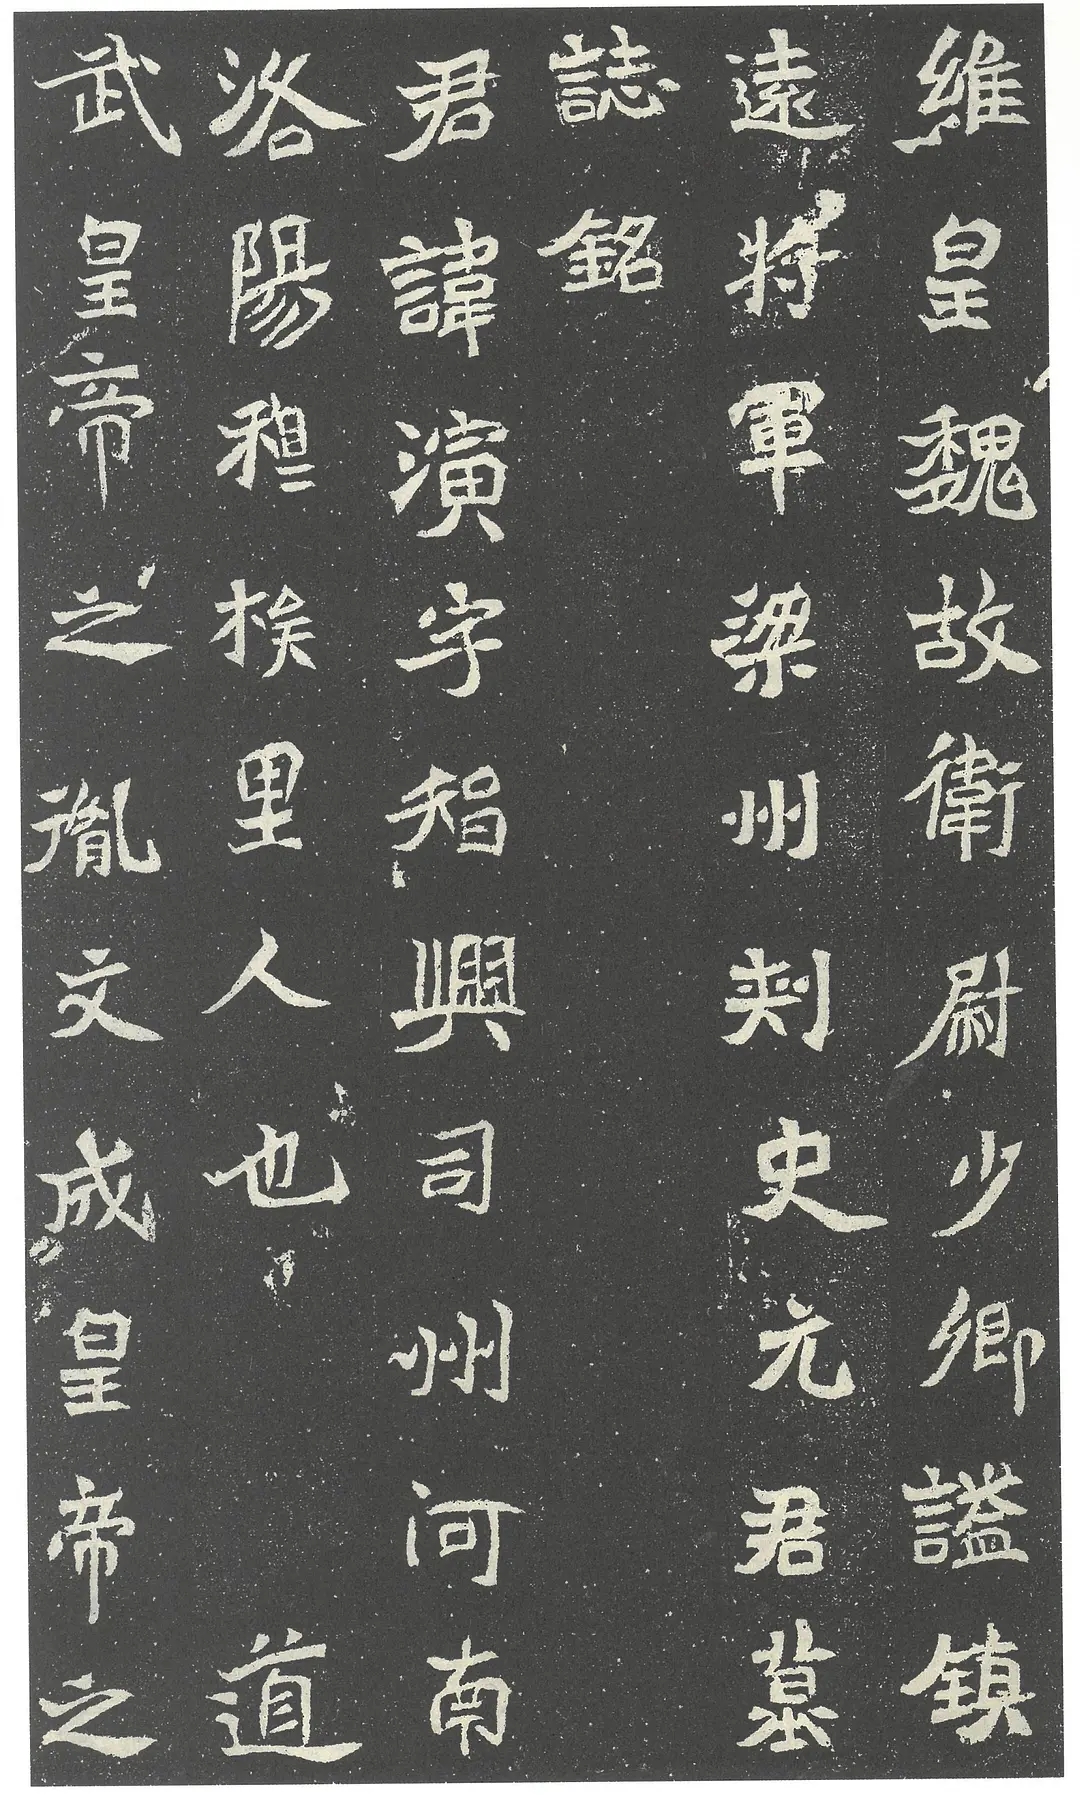 維皇魏故衛尉少卿謚鎮
遠將軍梁州刾史元君墓
誌銘
君諱演字智興司州河南
洛陽穆族里人也 道
武皇帝之胤文成皇帝之